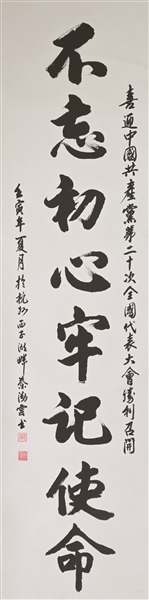 喜迎中國共產黨第二十次全國代表大會勝利召開
不忘初心牢記使命
壬寅年夏月於杭州西子湖畔蔡渤雲书